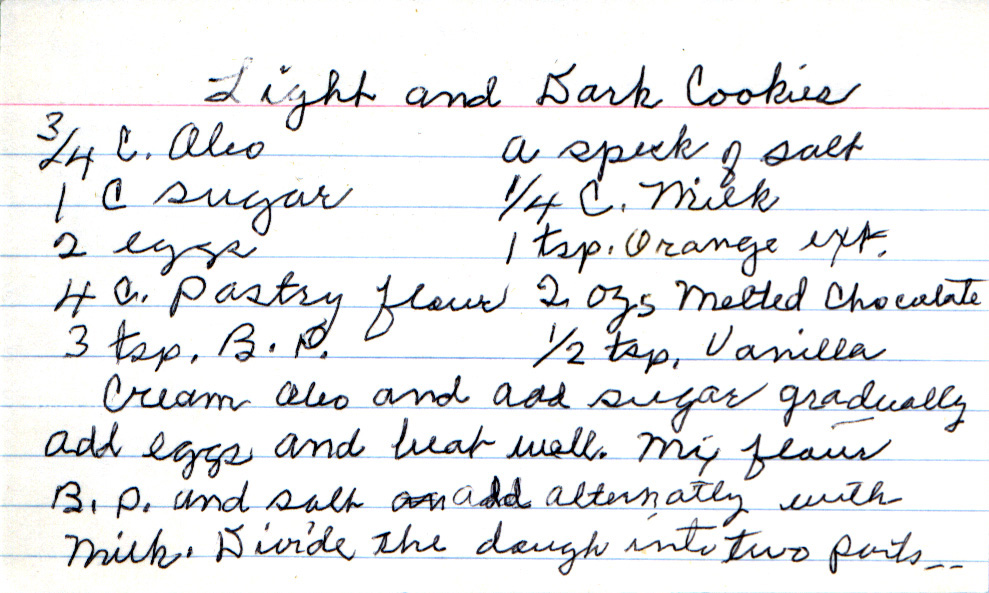 Light and Dark Cookies
3/4 C. Oleo a speck of salt
1 C sugar 1/4 C. Milk
2 eggs 1 tsp. Orange ext.
4 C. Pastry flour 2 ozs Melted Chocolate
3 tsp. B. P. 1/2 tsp. Vanilla
Cream oleo and add sugar gradually
add eggs and beat well. Mix flour
B. P. and salt add alternatly with
Milk. Divide the dough into two parts--